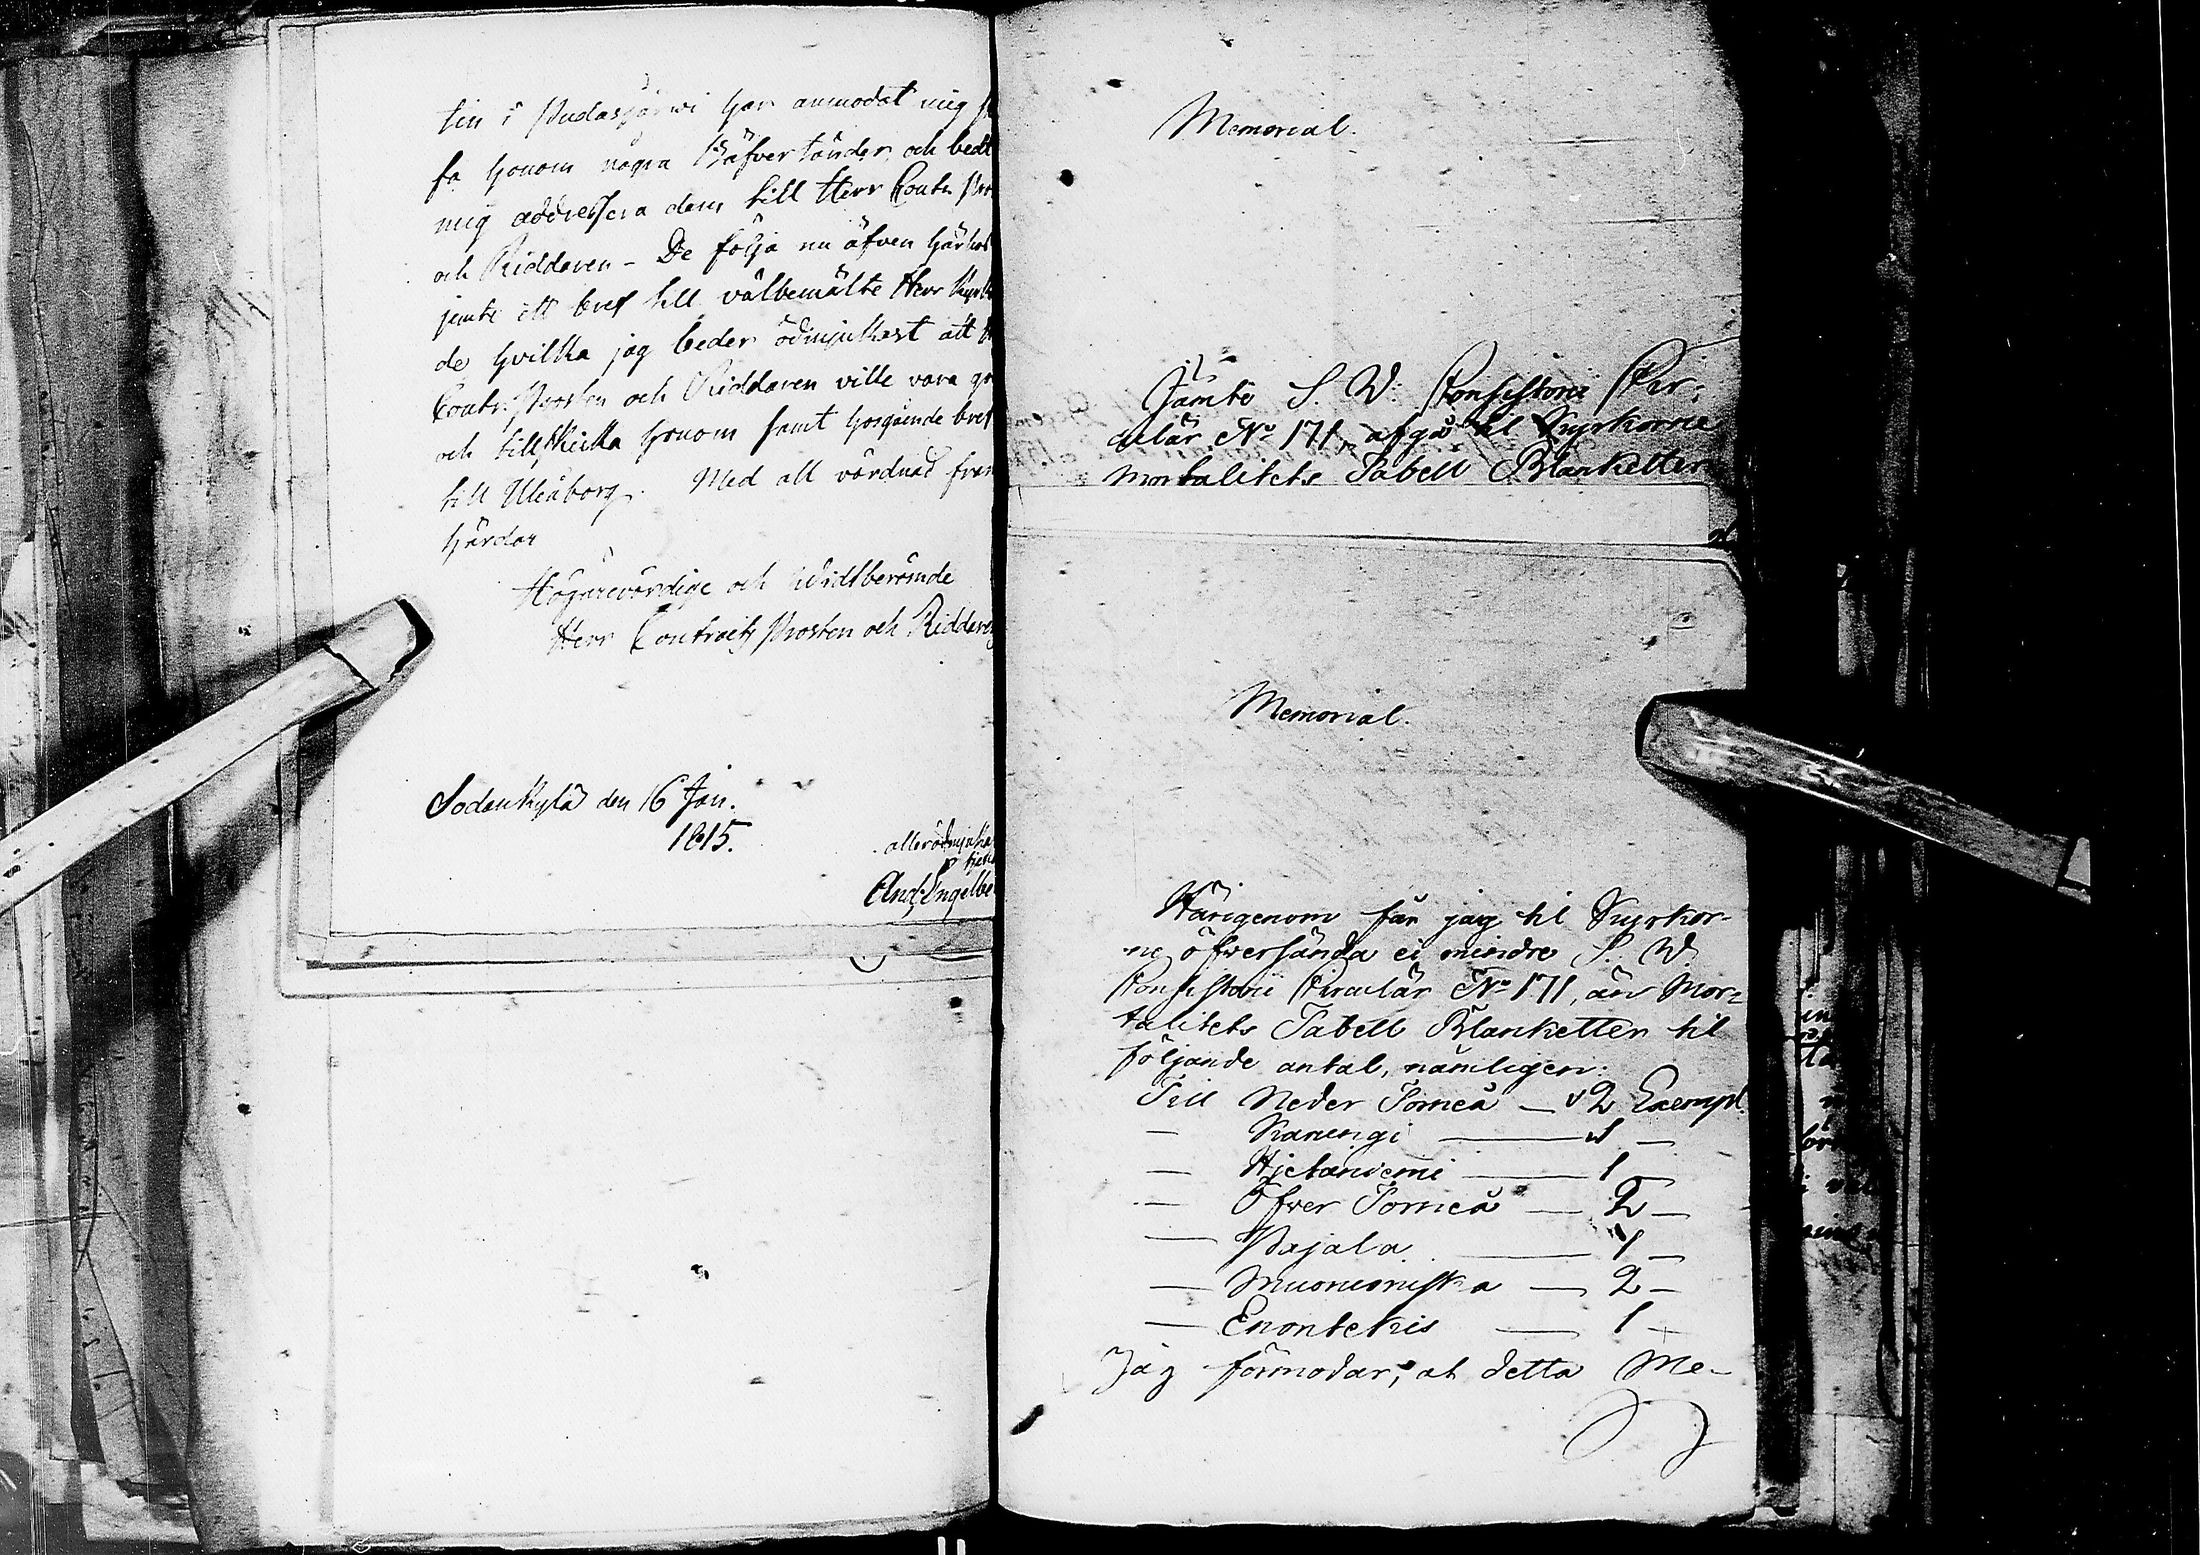 tin i Pudasjärwi har anmodat mig
fa honom några Bäfvertänder, och bedt
mig addressera dem till Herr Contr. Pro
och Riddaren – De följa nu äfven härhos
jemte ett bref till välbemälte Herr
de hvilka jag beder ödmjukast att
Contr. Prosten och Riddaren ville vara
och tillskicka honom samt hosgående bref
till Uleåborg. Med all vördnad fram
härdar
Högärevördige och Widtberömde
Herr Contracts Prosten och Riddaren
Sodankylä den 16 Jan.
1815.
allerödmjuka
tjen
And: Engelbe
Memorial.
Jämte S. V. Consistorii Cir-
culär No 171, afgå til Kyrkorne
Mortalitets Tabell Blanketter
Memorial.
Härigenom får jag til Kyrkor-
ne öfversända ei mindre S. V.
Consistorii Circulär No 171, än Mor-
talitets Tabell Blanketter til
följande antal, nämligen:
Till Neder Torneå — 2 Exempl.
— Karungi — 1 —
— Hjetaniemi — 1 —
— Öfver Torneå — 2 —
— Pajala — 1 —
— Muonioniska — 2 —
— Enontekis — 1 —
Jag förmodar, at detta Me-